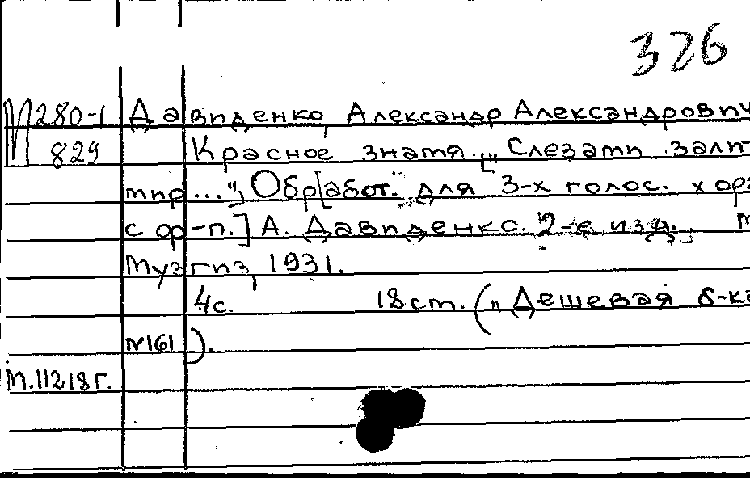 326
М280-1 Давиденко, Александр Александрович
829 Красное знамя. ["Слезами залит
мир...", Обр[абот." для 3-х голос. хора
с фр-п.] А. Давиденко. 2-е изд., М
Музгиз, 1931.
4с. 18 ст. ("Дешевая б-ка
№161).
М.11218г.